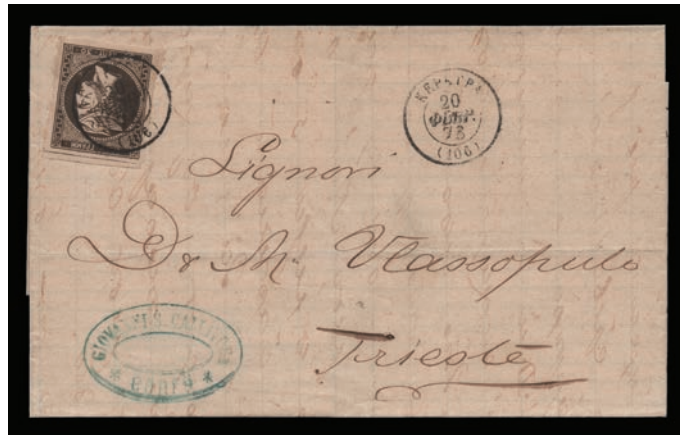 ΚΕΡΚΥΡΑ
20
ΦΕΒΡ.
73
(106)
(106)
Signori
Dr M. Vlassopulo
Trieste
GIOVANNI S.
* CORFÙ *